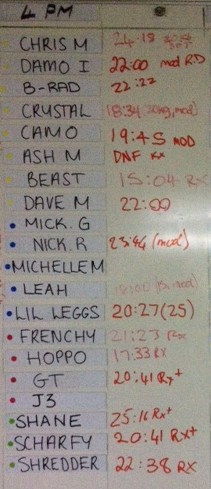 4 PM
CHRIS M 24:18
DAMO I 22:00 mod RD
B-RAD 22:22
CRYSTAL 18:34 mod)
CAMO 19:45 MOD
ASH M DNF Rx
BEAST 15:04 RX
DAVE M 22:00
MICK. G
NICK. R 23:44 (mod)
MICHELLE M
LEAH
LIL LEGGS 20:27(25)
FRENCHY 21:23 Rx
HOPPO 17:33 RX
GT 20:41 Rx+
J3
SHANE 25:16 Rx+
SCHARFY 20:41 Rx+
SHREDDER 22:38 RX